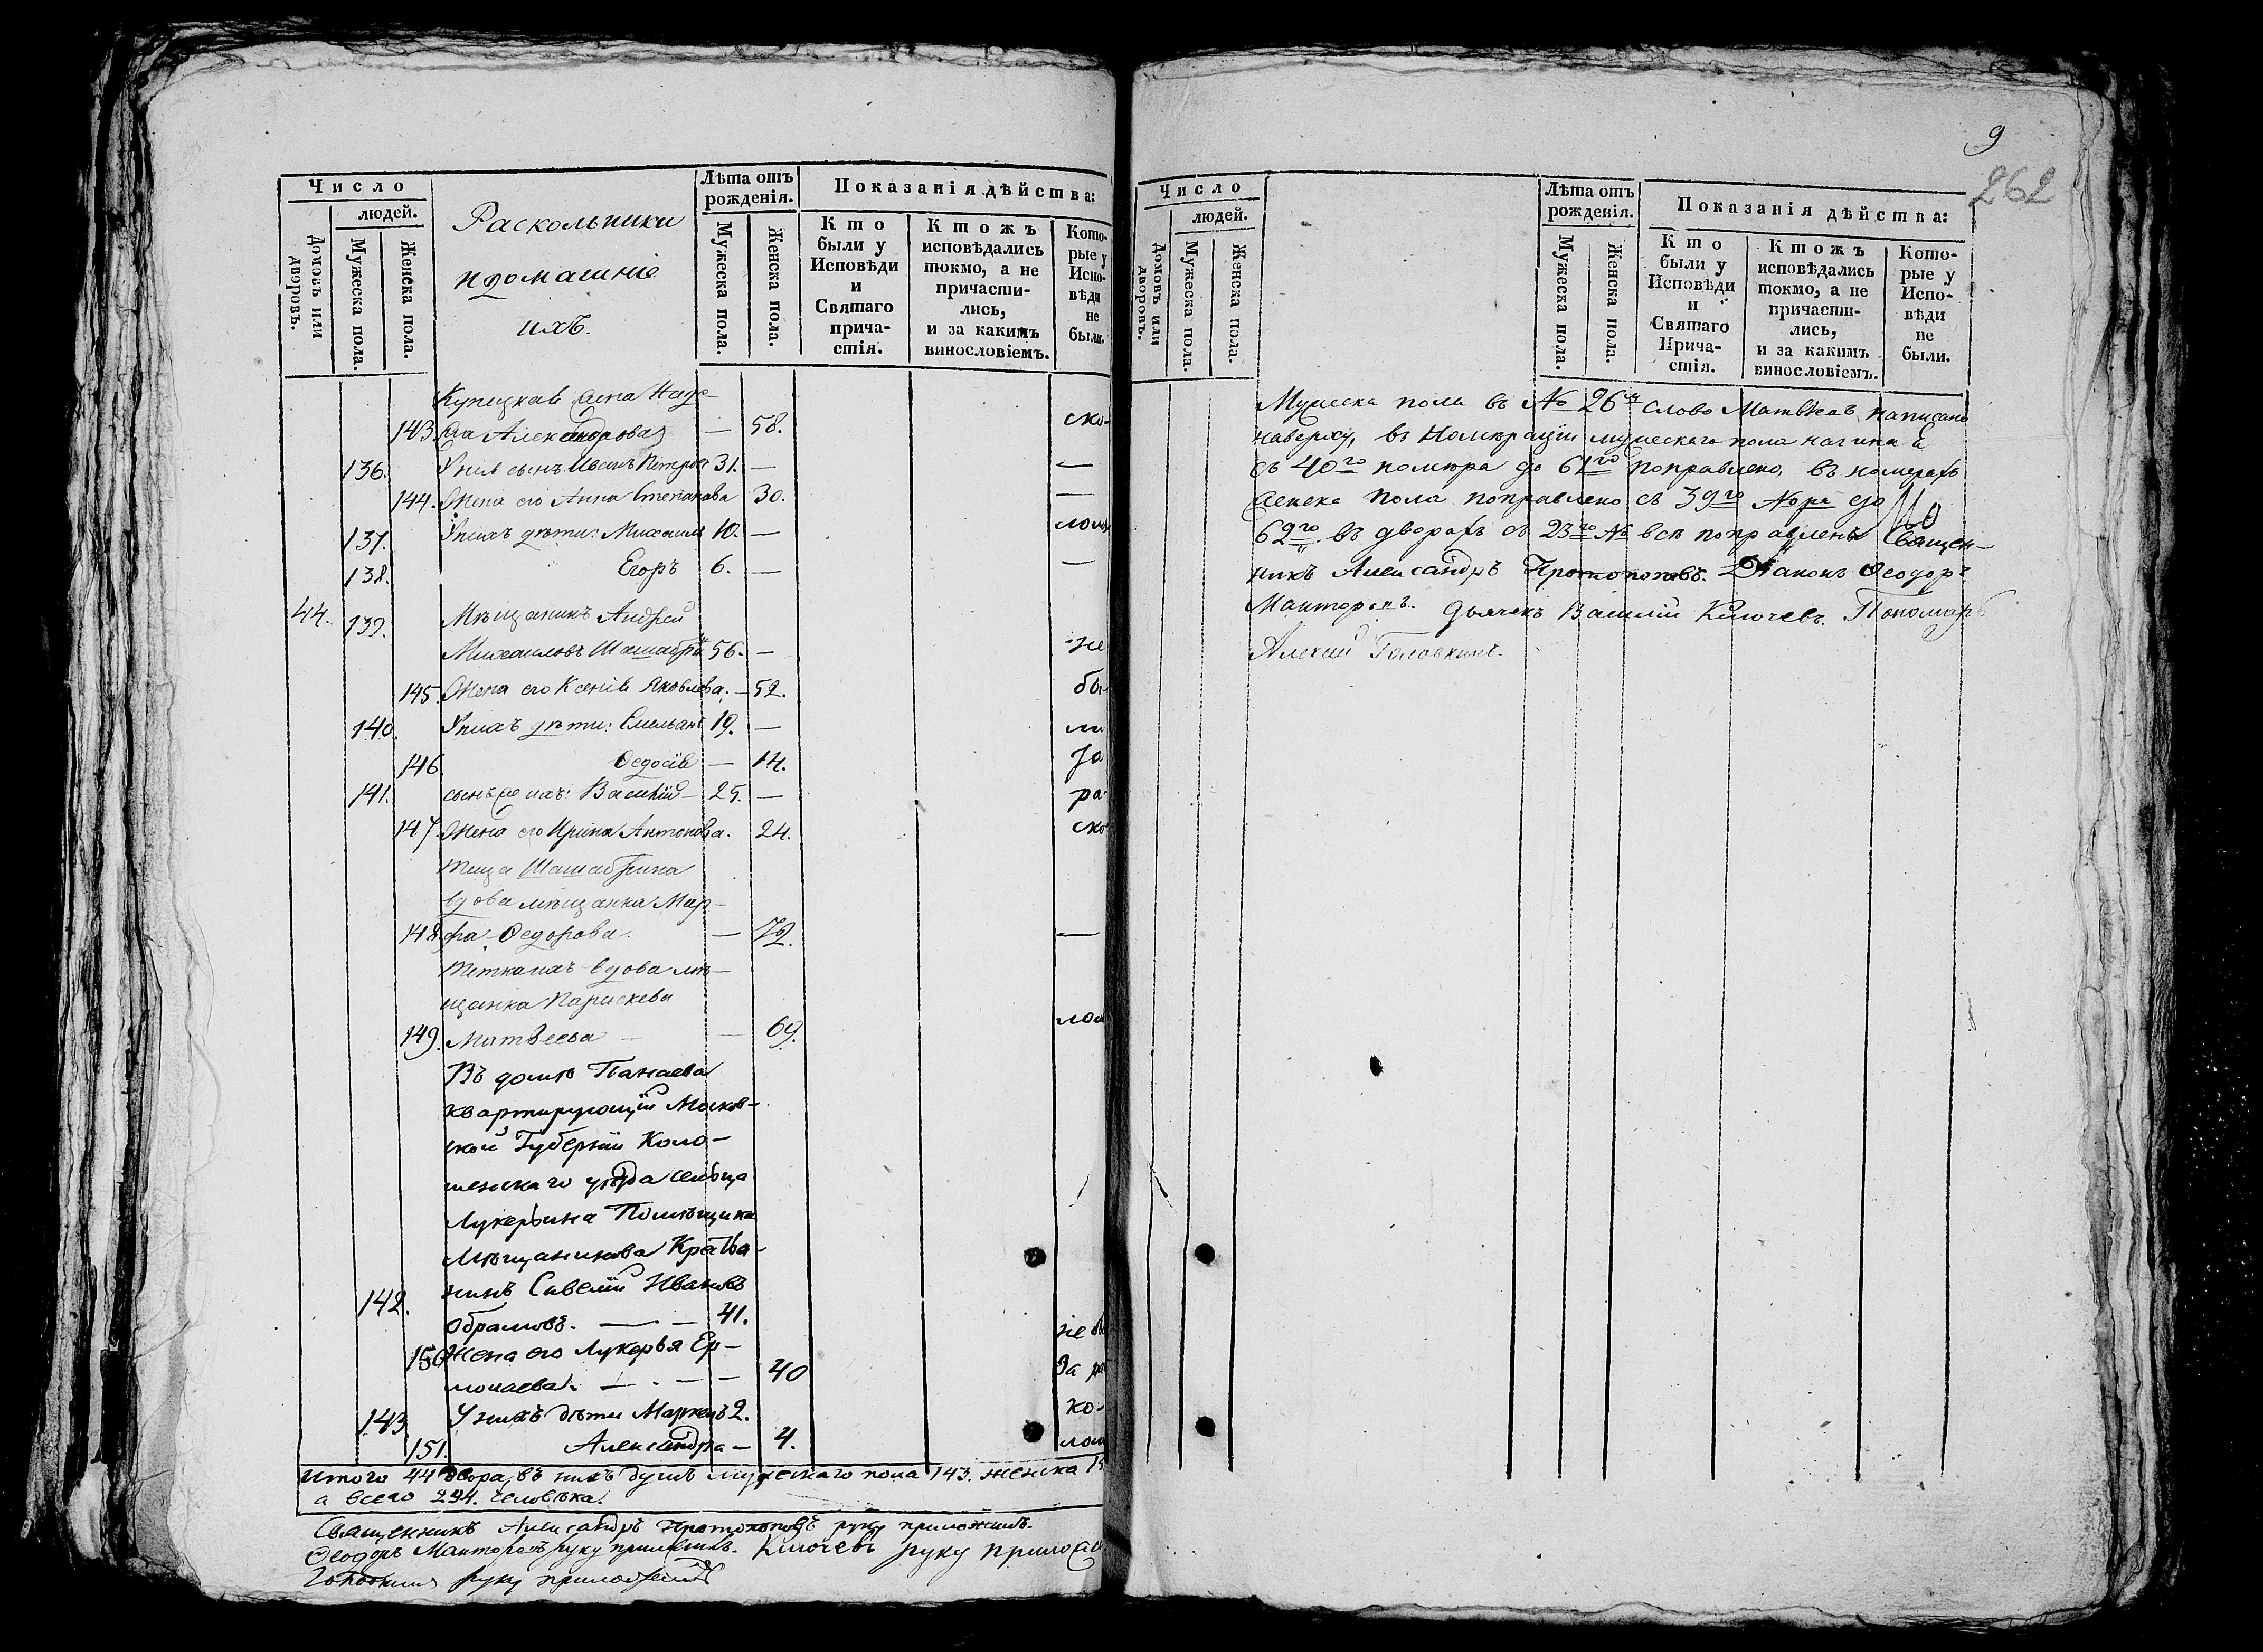 Число
людей.
Домовъ или дворовъ.
Мужеска пола.
Женска пола.
Раскольники
идомашніе
ихъ.
Лѣта отъ рожденія.
Мужеска пола.
Женска пола.
Показанія дѣйства:
Кто были у Исповѣди и Святаго причастія.
Ктожъ исповѣдались токмо, а не причастились, и за какимъ винословіемъ.
Которые у Исповѣди не были.
Купецкая жена Наде-
143. жда Александрова — 58. ско-
136. У нея сынъ Петров 31. —
144. Жена его Анна Степанова 30. —
137. У нихъ дѣти: Михаилъ 10. — лом
138. Егоръ 6. —
44. 139. Мѣщанинъ Андрей
Михаиловъ 56. — не
145. Жена его Ксенія Яковлева. — 52. бы-
140. У нихъ дѣти: Емельянъ 19. — ли
146. Ѳедосія — 14. За
141. сынъ же ихъ: Василій — 25. — ра-
147. Жена его Ирина Антонова. 24. ско-
теща
вдова мѣщанка Мар-
148. фа Ѳедорова. — 72. —
тетка ихъ вдова мѣ-
щанка Параскева
149. Матвеева — 69. лом
Въ домѣ Панаева
квартирующій Москов-
ской Губерніи Коло-
менскаго уѣзда сельца
Лукерьина Помѣщика
Мѣщанинова Крестья-
142. нинъ Савелій Ивановъ
Обрамовъ. — — 41. не бы
150 Жена его Лукерья Ер-
молаева. — — — 40 За ра
143. У нихъ дѣти 2. ко-
151. Александра — 4. лом
Итого 44 двора, въ нихъ душъ мужескаго пола 143. женска 15
а всего 294. человѣка.
Священникъ Александръ Протопоповъ руку приложилъ.
Ѳеодоръ Мантуровъ руку приложилъ. Ключевъ руку прилож
Головкинъ руку приложилъ
9
262
Число
людей.
Домовъ или дворовъ.
Мужеска пола.
Женска пола.
Лѣта отъ рожденія.
Мужеска пола.
Женска пола.
Показанія дѣйства:
Кто были у Исповѣди и Святаго Причастія.
Ктожъ исповѣдались токмо, а не причастились, и за какимъ винословіемъ.
Которые у Исповѣди не были.
Мужеска пола въ № 26 слово Матвѣевъ написано
наверху, въ Номераціи мужескаго пола начиная
съ 40го номера до 61го поправлено, въ номерахъ
женска пола поправлено съ 39го Nора до
62го. въ дворахъ съ 23го № всѣ поправлены Священ-
никъ Александръ Протопоповъ. Діаконъ Ѳеодоръ
Дьячекъ Василій Ключевъ. Пономарь
Алексій Головкинъ.